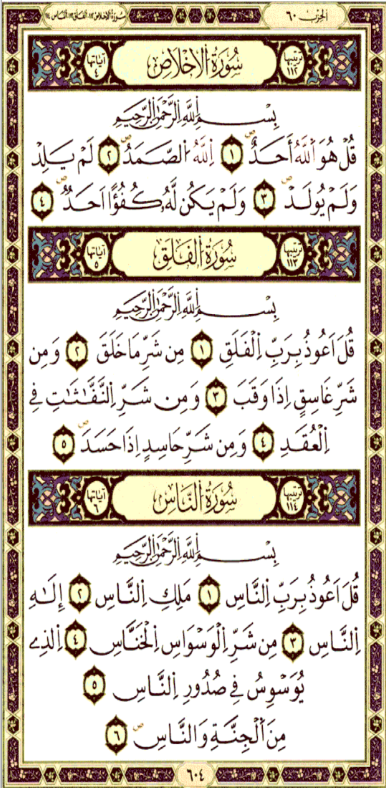 الحزب ٦٠
سورة الإخلاص ١١٢، الفلق ١١٣، الناس ١١٤
ترتيبها ١١٢ سُورَةُ الْإِخْلَاصِ آياتها ٤
بِسْمِ اللَّهِ الرَّحْمَٰنِ الرَّحِيمِ
قُلْ هُوَ اَ۬للَّهُ أَحَدٌ ١ اُ۬للَّهُ اُ۬لصَّمَدُ ٢ لَمْ يَلِدْ
وَلَمْ يُولَدْ ٣ وَلَمْ يَكُن لَّهُۥ كُفُؤًا اَحَدٌ ٤
ترتيبها ١١٣ سُورَةُ الْفَلَقِ آياتها ٥
بِسْمِ اللَّهِ الرَّحْمَٰنِ الرَّحِيمِ
قُلَ اَعُوذُ بِرَبِّ اِ۬لْفَلَقِ ١ مِن شَرِّ مَا خَلَقَ ٢ وَمِن
شَرِّ غَاسِقٍ اِذَا وَقَبَ ٣ وَمِن شَرِّ اِ۬لنَّفَّٰثَٰتِ فِے
اِ۬لْعُقَدِ ٤ وَمِن شَرِّ حَاسِدٍ اِذَا حَسَدَ ٥
ترتيبها ١١٤ سُورَةُ النَّاسِ آياتها ٦
بِسْمِ اللَّهِ الرَّحْمَٰنِ الرَّحِيمِ
قُلَ اَعُوذُ بِرَبِّ اِ۬لنَّاسِ ١ مَلِكِ اِ۬لنَّاسِ ٢ إِلَٰهِ
اِ۬لنَّاسِ ٣ مِن شَرِّ اِ۬لْوَسْوَاسِ اِ۬لْخَنَّاسِ ٤ اِ۬لذِے
يُوَسْوِسُ فِے صُدُورِ اِ۬لنَّاسِ ٥
مِنَ اَ۬لْجِنَّةِ وَالنَّاسِ ٦
٦٠٤